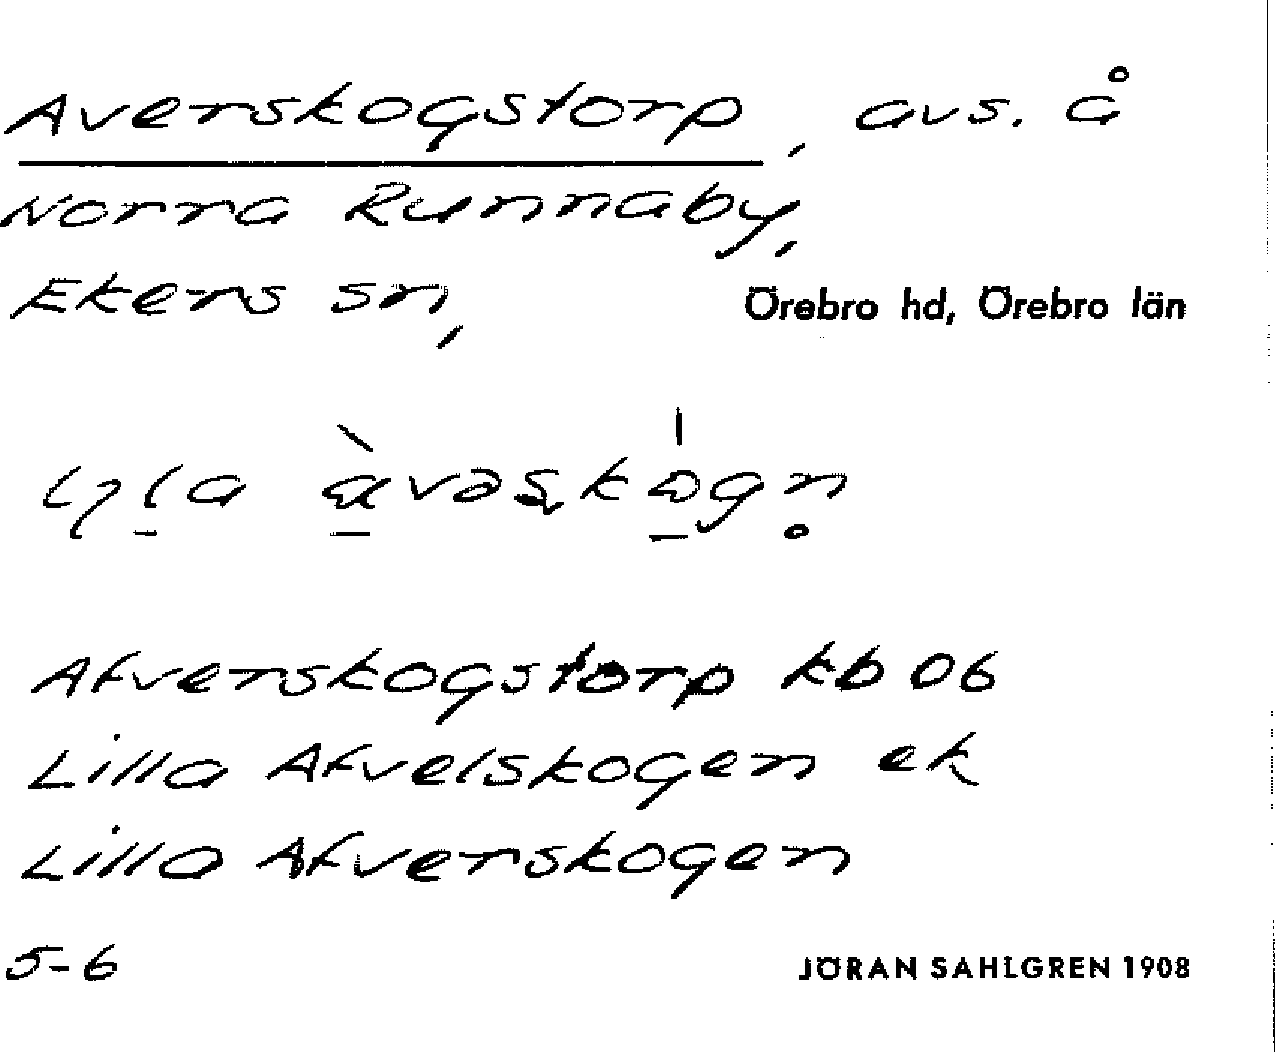 Averskogstorp, avs. å
Norra Runnaby,
Ekers sn,
Örebro hd, Örebro län
Afverskogstorp kb 06
Lilla Afvelskogen ek
Lilla Afverskogen
5-6
JÖRAN SAHLGREN 1908